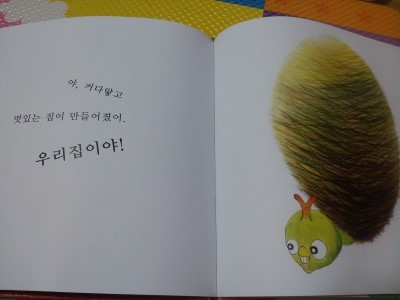 아, 커다랗고
멋있는 집이 만들어졌어.
우리집이야!